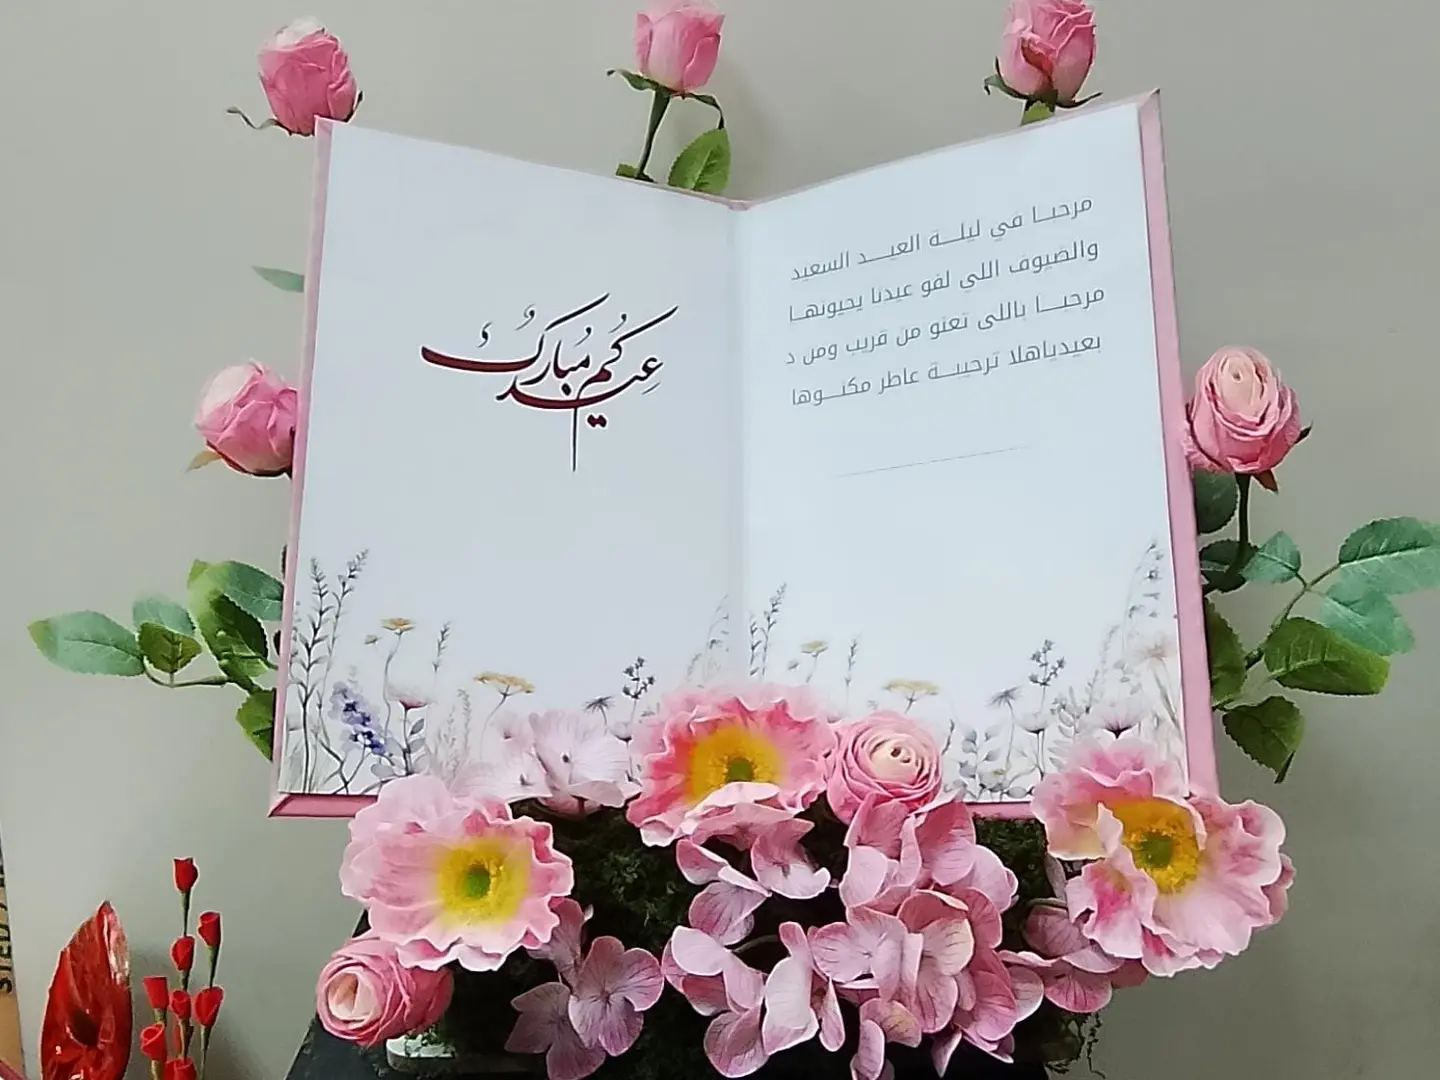 عيدكم مبارك
مرحبـــا في ليلـــة العيـــد السعيد
والضيوف اللي لفو عيدنا يحيونهـــا
مرحبـــا باللي تعنو من قريب ومن د
بعيدياهلا ترحيبـــة عاطر مكنـــوها